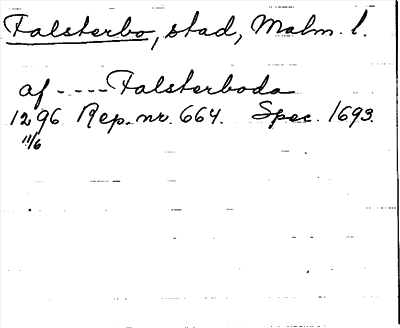 Falsterbo, stad, Malm. l.
af ---- Falsterboda
1296 Rep. nr. 664. Spec. 1693.
11/6